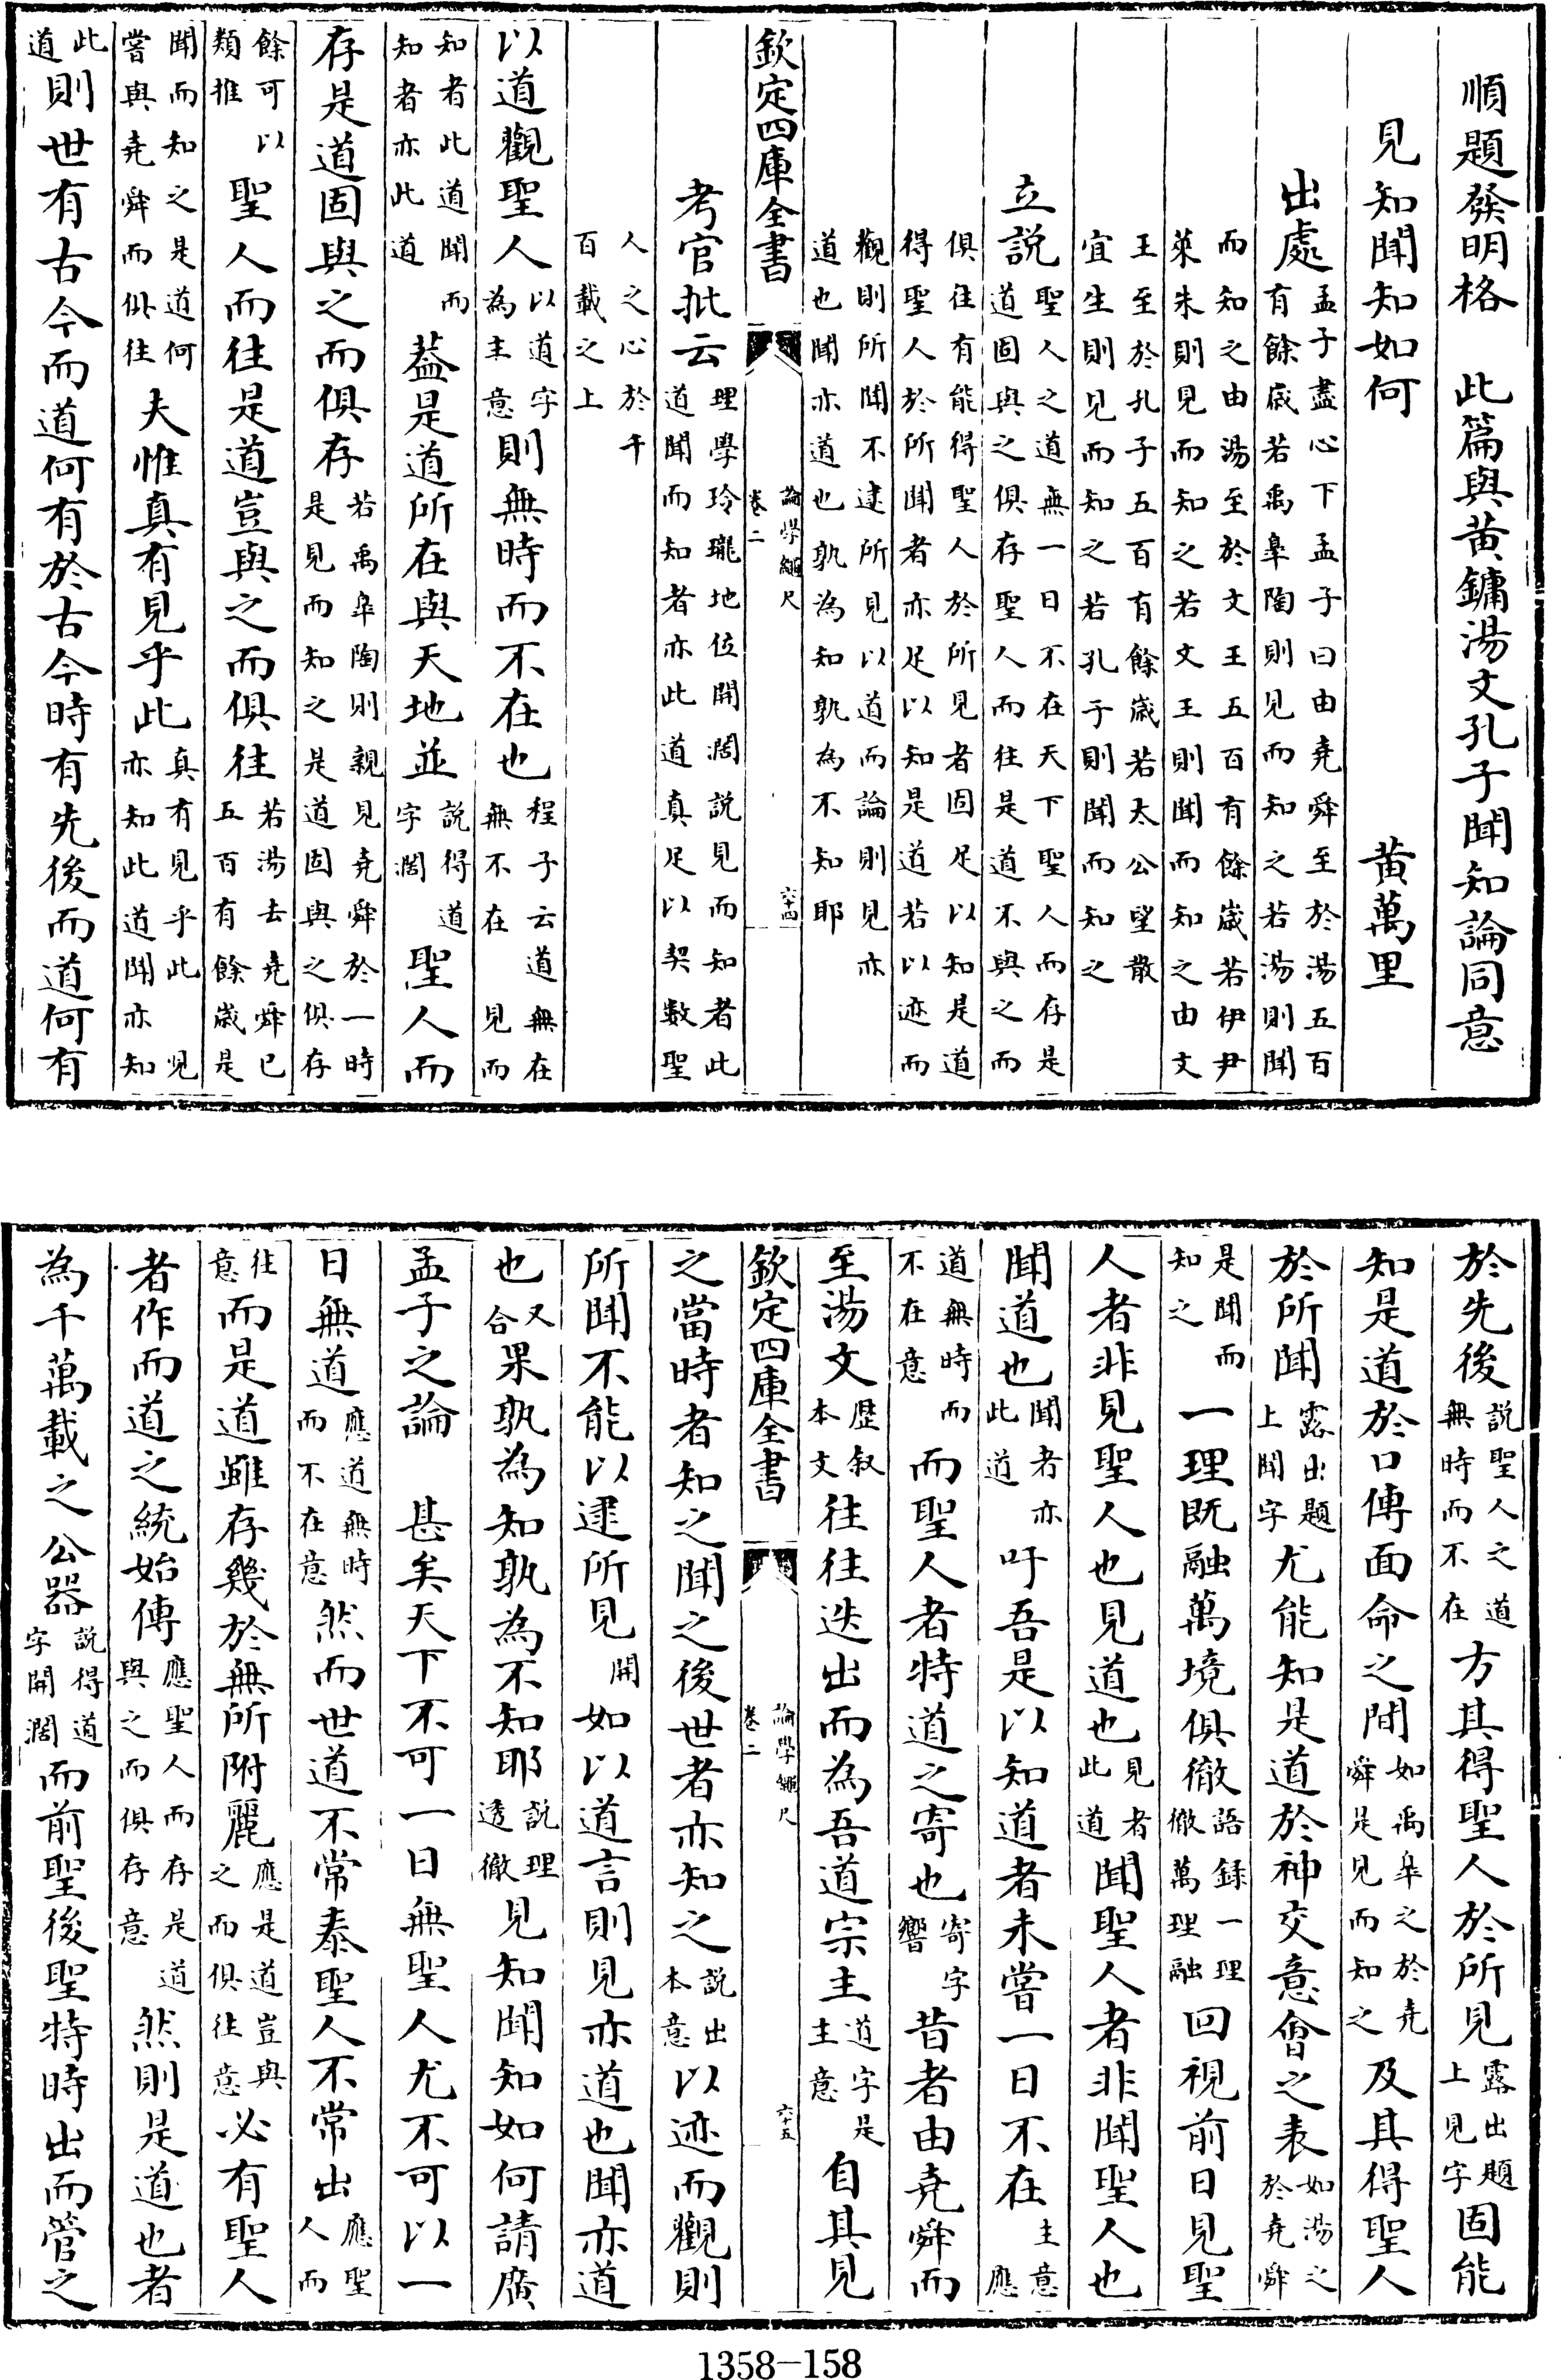 順題發明格　此篇與黄鏞湯文孔子聞知論同意
見知聞知如何　黄萬里
出處
孟子盡心下孟子曰由堯舜至於湯五百
有餘歲若禹臯陶則見而知之若湯則聞
而知之由湯至於文王五百有餘歲若伊尹
萊朱則見而知之若文王則聞而知之由文
王至於孔子五百有餘歲若太公望散
宜生則見而知之若孔子則聞而知之
立説
聖人之道無一日不在天下聖人而存是
道固與之俱存聖人而往是道不與之而
俱往有能得聖人於所見者固足以知是道
得聖人於所聞者亦足以知是道若以迹而
觀則所聞不逮所見以道而論則見亦
道也聞亦道也孰為知孰為不知耶
欽定四庫全書　論學繩尺　卷二　六十四
考官批云
理學玲瓏地位開濶説見而知者此
道聞而知者亦此道真足以契数聖
人之心於千
百載之上
以道觀聖人以道字為主意則無時而不在也程子云道無在無不在　見而
知者此道聞而知者亦此道蓋是道所在與天地並説得道字濶聖人而
存是道固與之而俱存若禹皐陶則親見堯舜於一時是見而知之是道固與之俱存
餘可以類推聖人而往是道豈與之而俱往若湯去堯舜已五百有餘歲是
聞而知之是道何嘗與堯舜而俱往夫惟真有見乎此真有見乎此　見亦知此道聞亦知
此道則世有古今而道何有於古今時有先後而道何有
於先後説聖人之道無時而不在方其得聖人於所見露出題上見字固能
知是道於口傳面命之間如禹皋之於堯舜是見而知之及其得聖人
於所聞露出題上聞字尤能知是道於神交意會之表如湯之於堯舜
是聞而知之一理既融萬境俱徹語録一理徹萬理融回視前日見聖
人者非見聖人也見道也見者此道聞聖人者非聞聖人也
聞道也聞者亦此道吁吾是以知道者未嘗一日不在主意應
道無時而不在意而聖人者特道之寄也寄字響昔者由堯舜而
至湯文歴叙本文往往迭出而為吾道宗主道字是主意自其見
欽定四庫全書　論學繩尺　卷二　六十五
之當時者知之聞之後世者亦知之説出本意以迹而觀則
所聞不能以逮所見開如以道言則見亦道也聞亦道
也又合果孰為知孰為不知耶説理透徹見知聞知如何請廣
孟子之論　甚矣天下不可一日無聖人尤不可以一
日無道應道無時而不在意然而世道不常泰聖人不常出應聖人而
往意而是道雖存幾於無所附麗應是道豈與之而俱往意必有聖人
者作而道之統始傳應聖人而存是道與之而俱存意然則是道也者
為千萬載之公器説得道字開濶而前聖後聖特時出而管之
1358-158